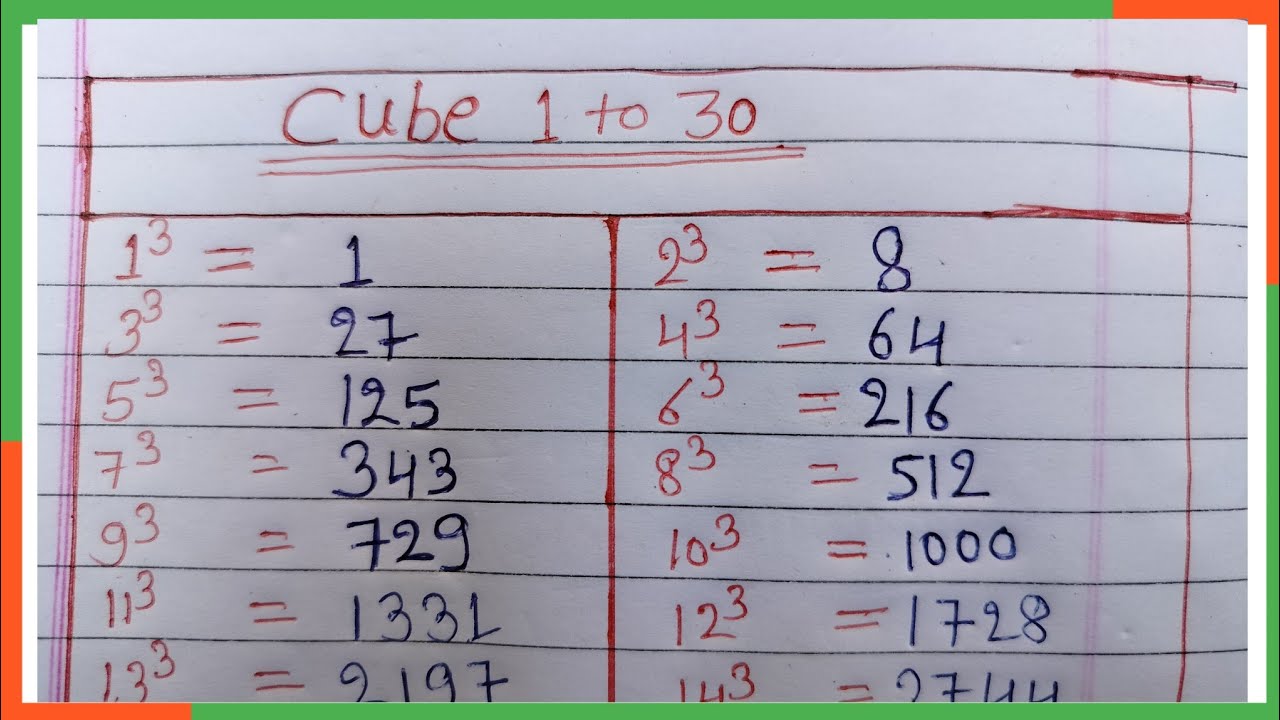 Cube 1 to 30
1³ = 1 2³ = 8
3³ = 27 4³ = 64
5³ = 125 6³ = 216
7³ = 343 8³ = 512
9³ = 729 10³ = 1000
11³ = 1331 12³ = 1728
13³ = 2197 14³ = 2744